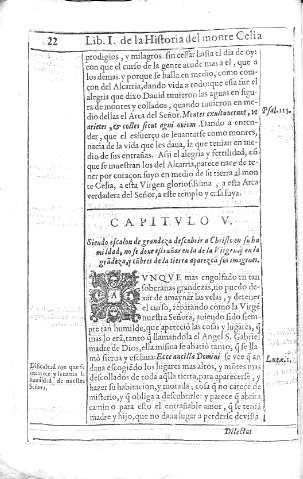 22 Lib. I. de la Historia del monte Celia
prodigios, y milagros sin cessar hasta el dia de oy:
con que el curso de la gente acude mas a el, que a
los demas. y porque se halla en medio, como coraçon
çon del Alcarria, dando vida a todo: que essa fue el
alegria que dixo Dauid tuuieron las aguas en figura
ra de montes y collados, quando tuuieron en medio
dio dellas el Arca del Señor. Montes exultauerunt, vt
arietes, & colles sicut agni ouium. Dando a entender,
der, que el esfuerço de leuantarse como montes,
nacia de la vida que les daua, la que tenian en medio
dio de sus entrañas. Assi el alegria y fertilidad, en
que se muestran los del Alcarria, parece nace de tener
ner por coraçon suyo en medio de su tierra al monte
te Celia, a esta Virgen gloriosissima, y a esta Arca
verdadera del Señor, a este templo y casa suya.
Psal. 113.
CAPITVLO V.
Siendo escabon de grandeza descubrir a Christo en su humildad,
mildad, no se dexe esta
grãdeza, y cũbres de la tierra aparezca sus imagenes.
AVNQVE mas engolfado en tan
soberanas grandezas, no puedo dexar
xar de amaynar las velas, y detener
el curso, reparando como la Virgẽ
nuestra Señora, auiendo sido siempre
pre tan humilde, que apeteciò las cosas y lugares, q̃
mas lo erã, tanto q̃ llamandola el Angel S. Gabriel
madre de Dios, ella misma se abatio tanto, q̃ se llamò
mò sierua y esclaua: Ecce ancilla Domini se vee q̃ anda
da escogiẽdo los lugares mas altos, y mõtes mas
descollados de toda aq̃lla tierra, para aparecerse, y
hazer su habitacion, y morada, cosa q̃ no carece de
misterio, y q̃ obliga a descubrirle: y parece q̃ abrirà
camino para esto el entrañable amor, q̃ se tenia
madre y hijo, que no daua lugar a perderse de vista
Dificultad
nuestra
Señora.
Luca. 1.
Dilectus